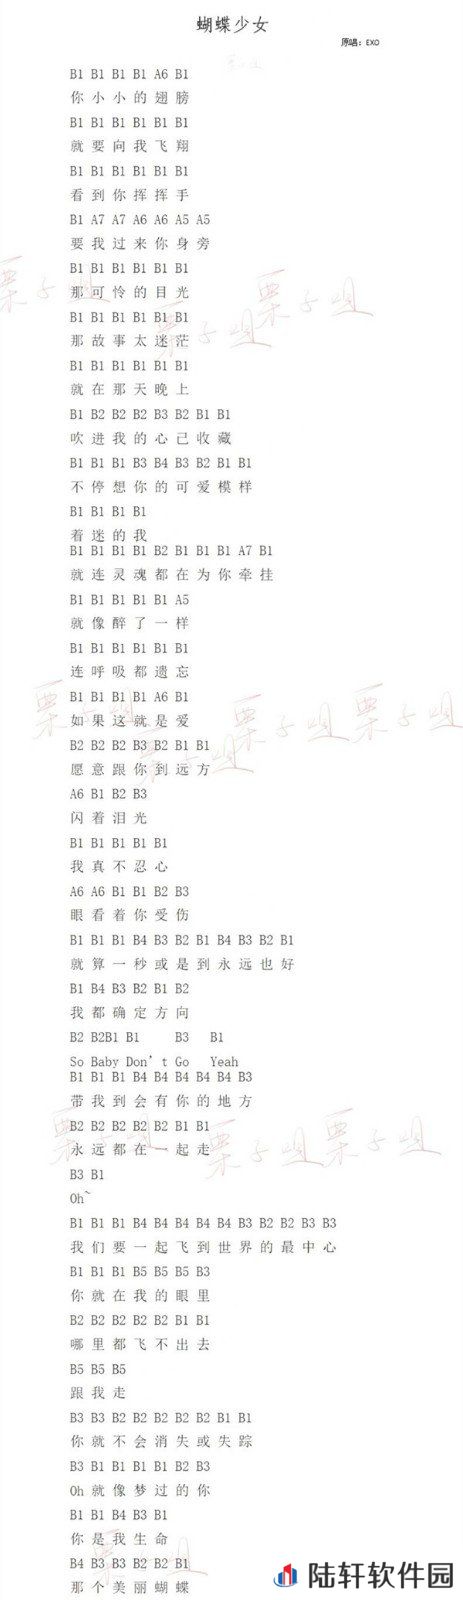 蝴蝶少女
原唱：EXO
B1 B1 B1 B1 A6 B1
你小小的翅膀
B1 B1 B1 B1 B1 B1
就要向我飞翔
B1 B1 B1 B1 B1 B1
看到你挥挥手
B1 A7 A7 A6 A6 A5 A5
要我过来你身旁
B1 B1 B1 B1 B1 B1
那可怜的目光
B1 B1 B1 B1 B1 B1
那故事太迷茫
B1 B1 B1 B1 B1 B1
就在那天晚上
B1 B2 B2 B2 B3 B2 B1 B1
吹进我的心己收藏
B1 B1 B1 B3 B4 B3 B2 B1 B1
不停想你的可爱模样
B1 B1 B1 B1
着迷的我
B1 B1 B1 B1 B2 B1 B1 B1 A7 B1
就连灵魂都在为你牵挂
B1 B1 B1 B1 B1 A5
就像醉了一样
B1 B1 B1 B1 B1 B1
连呼吸都遗忘
B1 B1 B1 B1 A6 B1
如果这就是爱
B2 B2 B2 B3 B2 B1 B1
愿意跟你到远方
A6 B1 B2 B3
闪着泪光
B1 B1 B1 B1 B1
我真不忍心
A6 A6 B1 B1 B2 B3
眼看着你受伤
B1 B1 B1 B4 B3 B2 B1 B4 B3 B2 B1
就算一秒或是到永远也好
B1 B4 B3 B2 B1 B2
我都确定方向
B2 B2B1 B1 B3 B1
So Baby Don't Go Yeah
B1 B1 B1 B4 B4 B4 B4 B4 B3
带我到会有你的地方
B2 B2 B2 B2 B2 B1 B1
永远都在一起走
B3 B1
Oh~
B1 B1 B1 B4 B4 B4 B4 B4 B3 B2 B2 B3 B3
我们要一起飞到世界的最中心
B1 B1 B1 B5 B5 B5 B3
你就在我的眼里
B2 B2 B2 B2 B2 B1 B1
哪里都飞不出去
B5 B5 B5
跟我走
B3 B3 B2 B2 B2 B2 B2 B1 B1
你就不会消失或失踪
B3 B1 B1 B1 B1 B2 B3
Oh就像梦过的你
B1 B1 B4 B3 B1
你是我生命
B4 B3 B3 B2 B2 B1
那个美丽蝴蝶
栗子姐
栗子姐
栗子姐
栗子姐
栗子姐
栗子姐
栗子姐
栗子姐
栗子姐
栗子姐
栗子姐
陆轩软件园